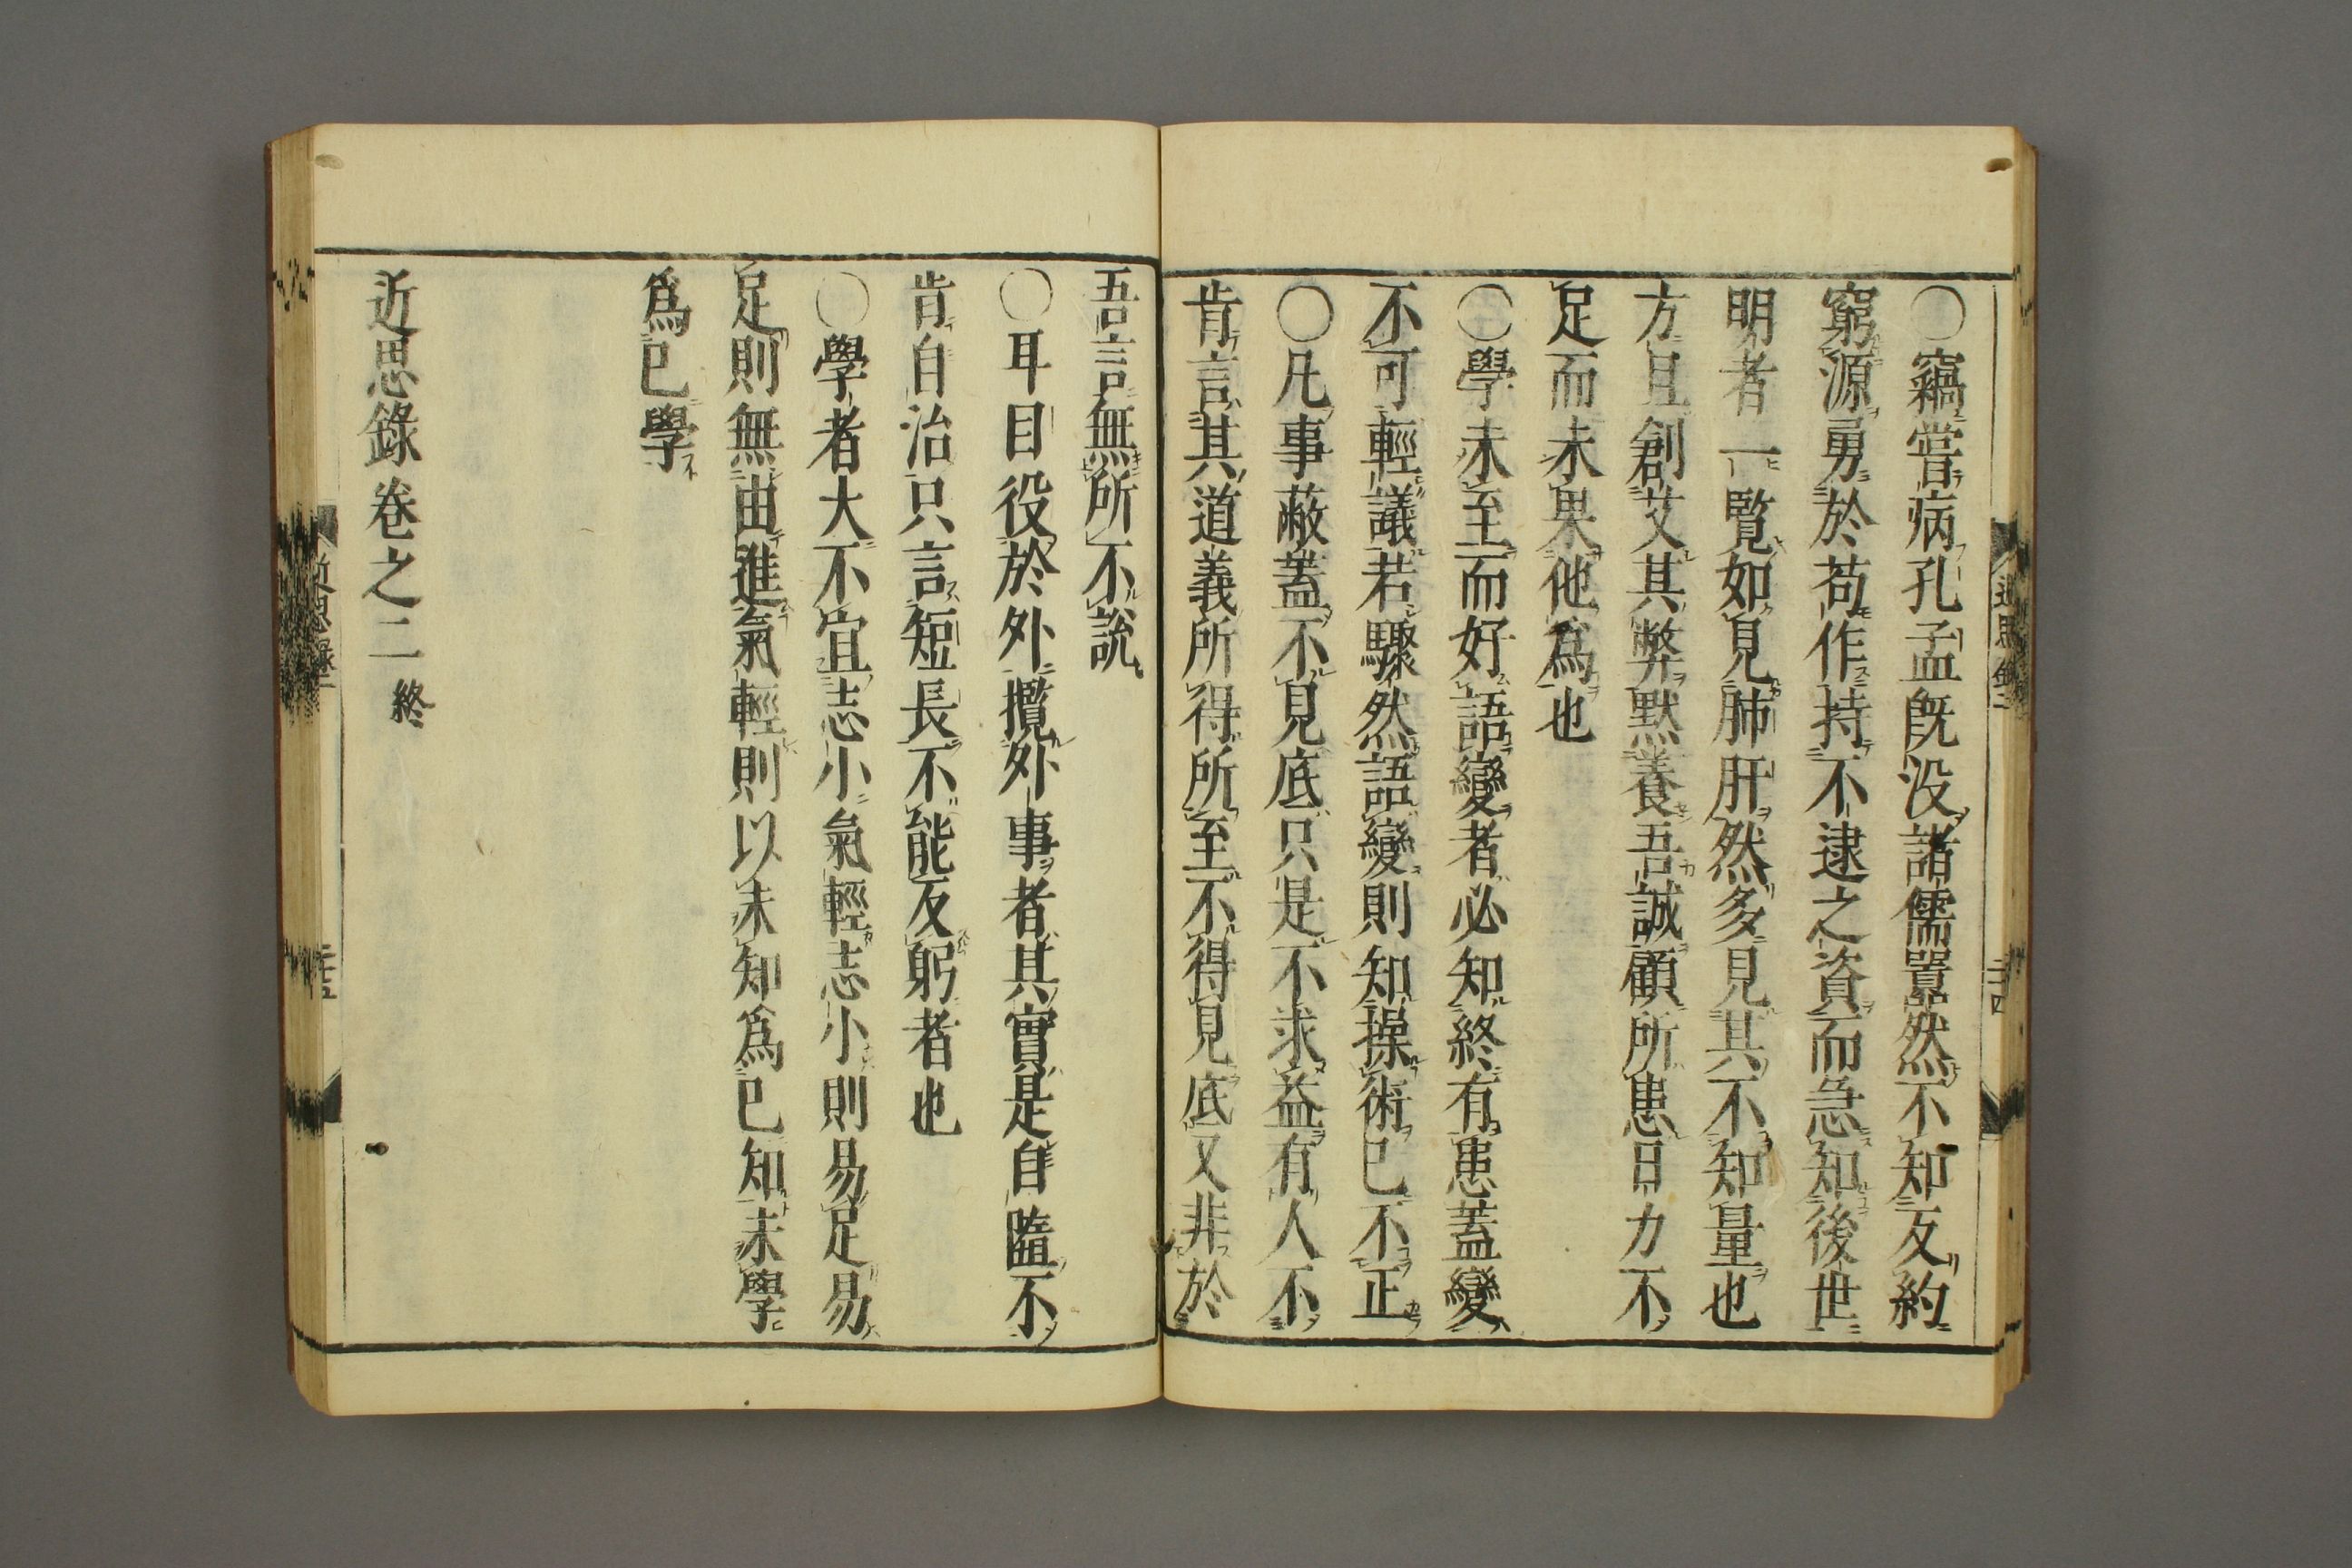 〇竊嘗病孔孟既没諸儒囂然不知反約
窮源勇於苟作持不逮之資而急知後世
明者一覽如見肺肝然多見其不知量也
方且創艾其弊默養吾誠顧所患日力不
足而未果他爲也
〇學未至而好語變者必知終有患蓋變
不可輕議若驟然語變則知操術已不正
〇凡事蔽蓋不見底只是不求益有人不
肯言其道義所得所至不得見底又非於
吾言無所不說
〇耳目役於外攬外事者其實是自墮不
肯自治只言短長不能反躬者也
〇學者大不宜志小氣輕志小則易足易
足則無由進氣輕則以未知爲已知未學
爲已學
近思錄卷之二終
近思錄二
二十四
近思錄二
二十五